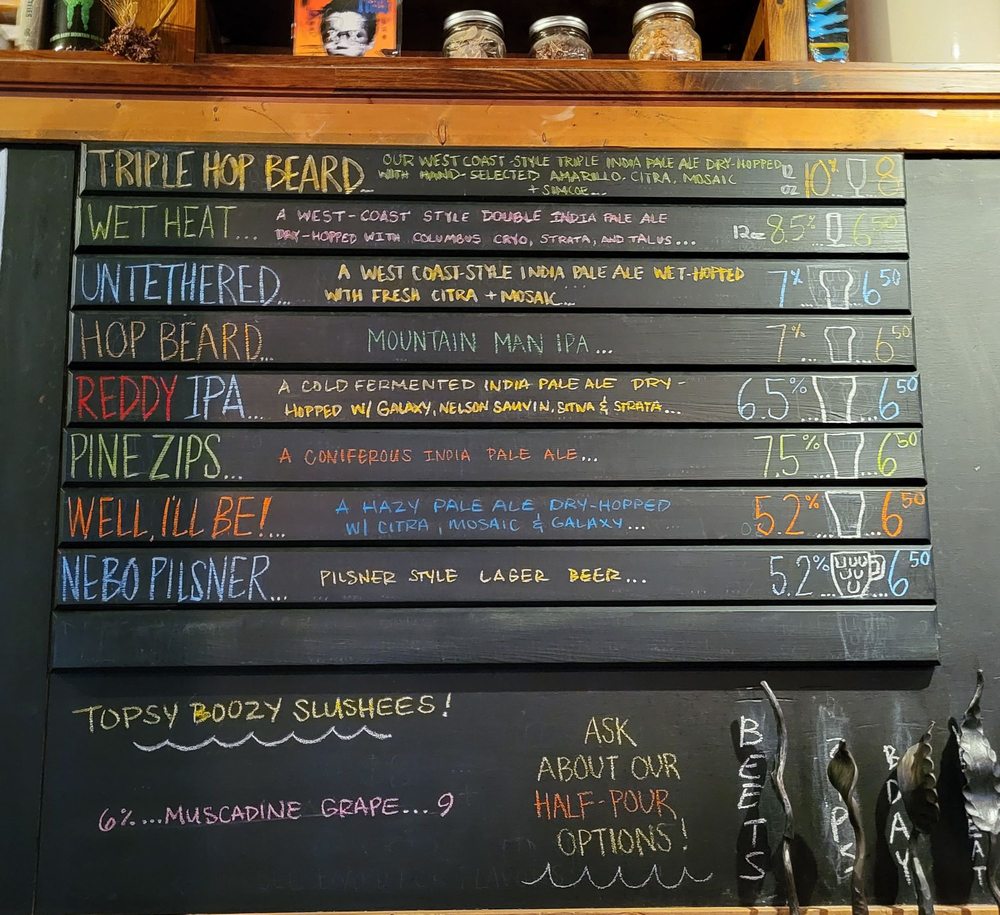 TRIPLE HOP BEARD... OUR WEST COAST-STYLE TRIPLE INDIA PALE ALE DRY-HOPPED 12 10% 8
WITH HAND-SELECTED AMARILLO, CITRA, MOSAIC OZ
+ SIMCOE...
WET HEAT... A WEST-COAST STYLE DOUBLE INDIA PALE ALE 12oz 8.5% 6.50
DRY-HOPPED WITH COLUMBUS CRYO, STRATA, AND TALUS...
UNTETHERED... A WEST COAST-STYLE INDIA PALE ALE WET-HOPPED 7% ... 6.50
WITH FRESH CITRA + MOSAIC...
HOP BEARD... MOUNTAIN MAN IPA... 7% ... 6.50
REDDY IPA... A COLD FERMENTED INDIA PALE ALE DRY- 6.5% ... 6.50
HOPPED W/ GALAXY, NELSON SAUVIN, & STRATA...
PINE ZIPS... A CONIFEROUS INDIA PALE ALE... 7.5% ... 6.50
WELL, I'LL BE!... A HAZY PALE ALE DRY-HOPPED 5.2% ... 6.50
W/ CITRA, MOSAIC & GALAXY...
NEBO PILSNER... PILSNER STYLE LAGER BEER... 5.2% ... 6.50
TOPSY BOOZY SLUSHEES!
6%...MUSCADINE GRAPE...9
ASK
ABOUT OUR
HALF-POUR
OPTIONS!
BEETS
BDAY